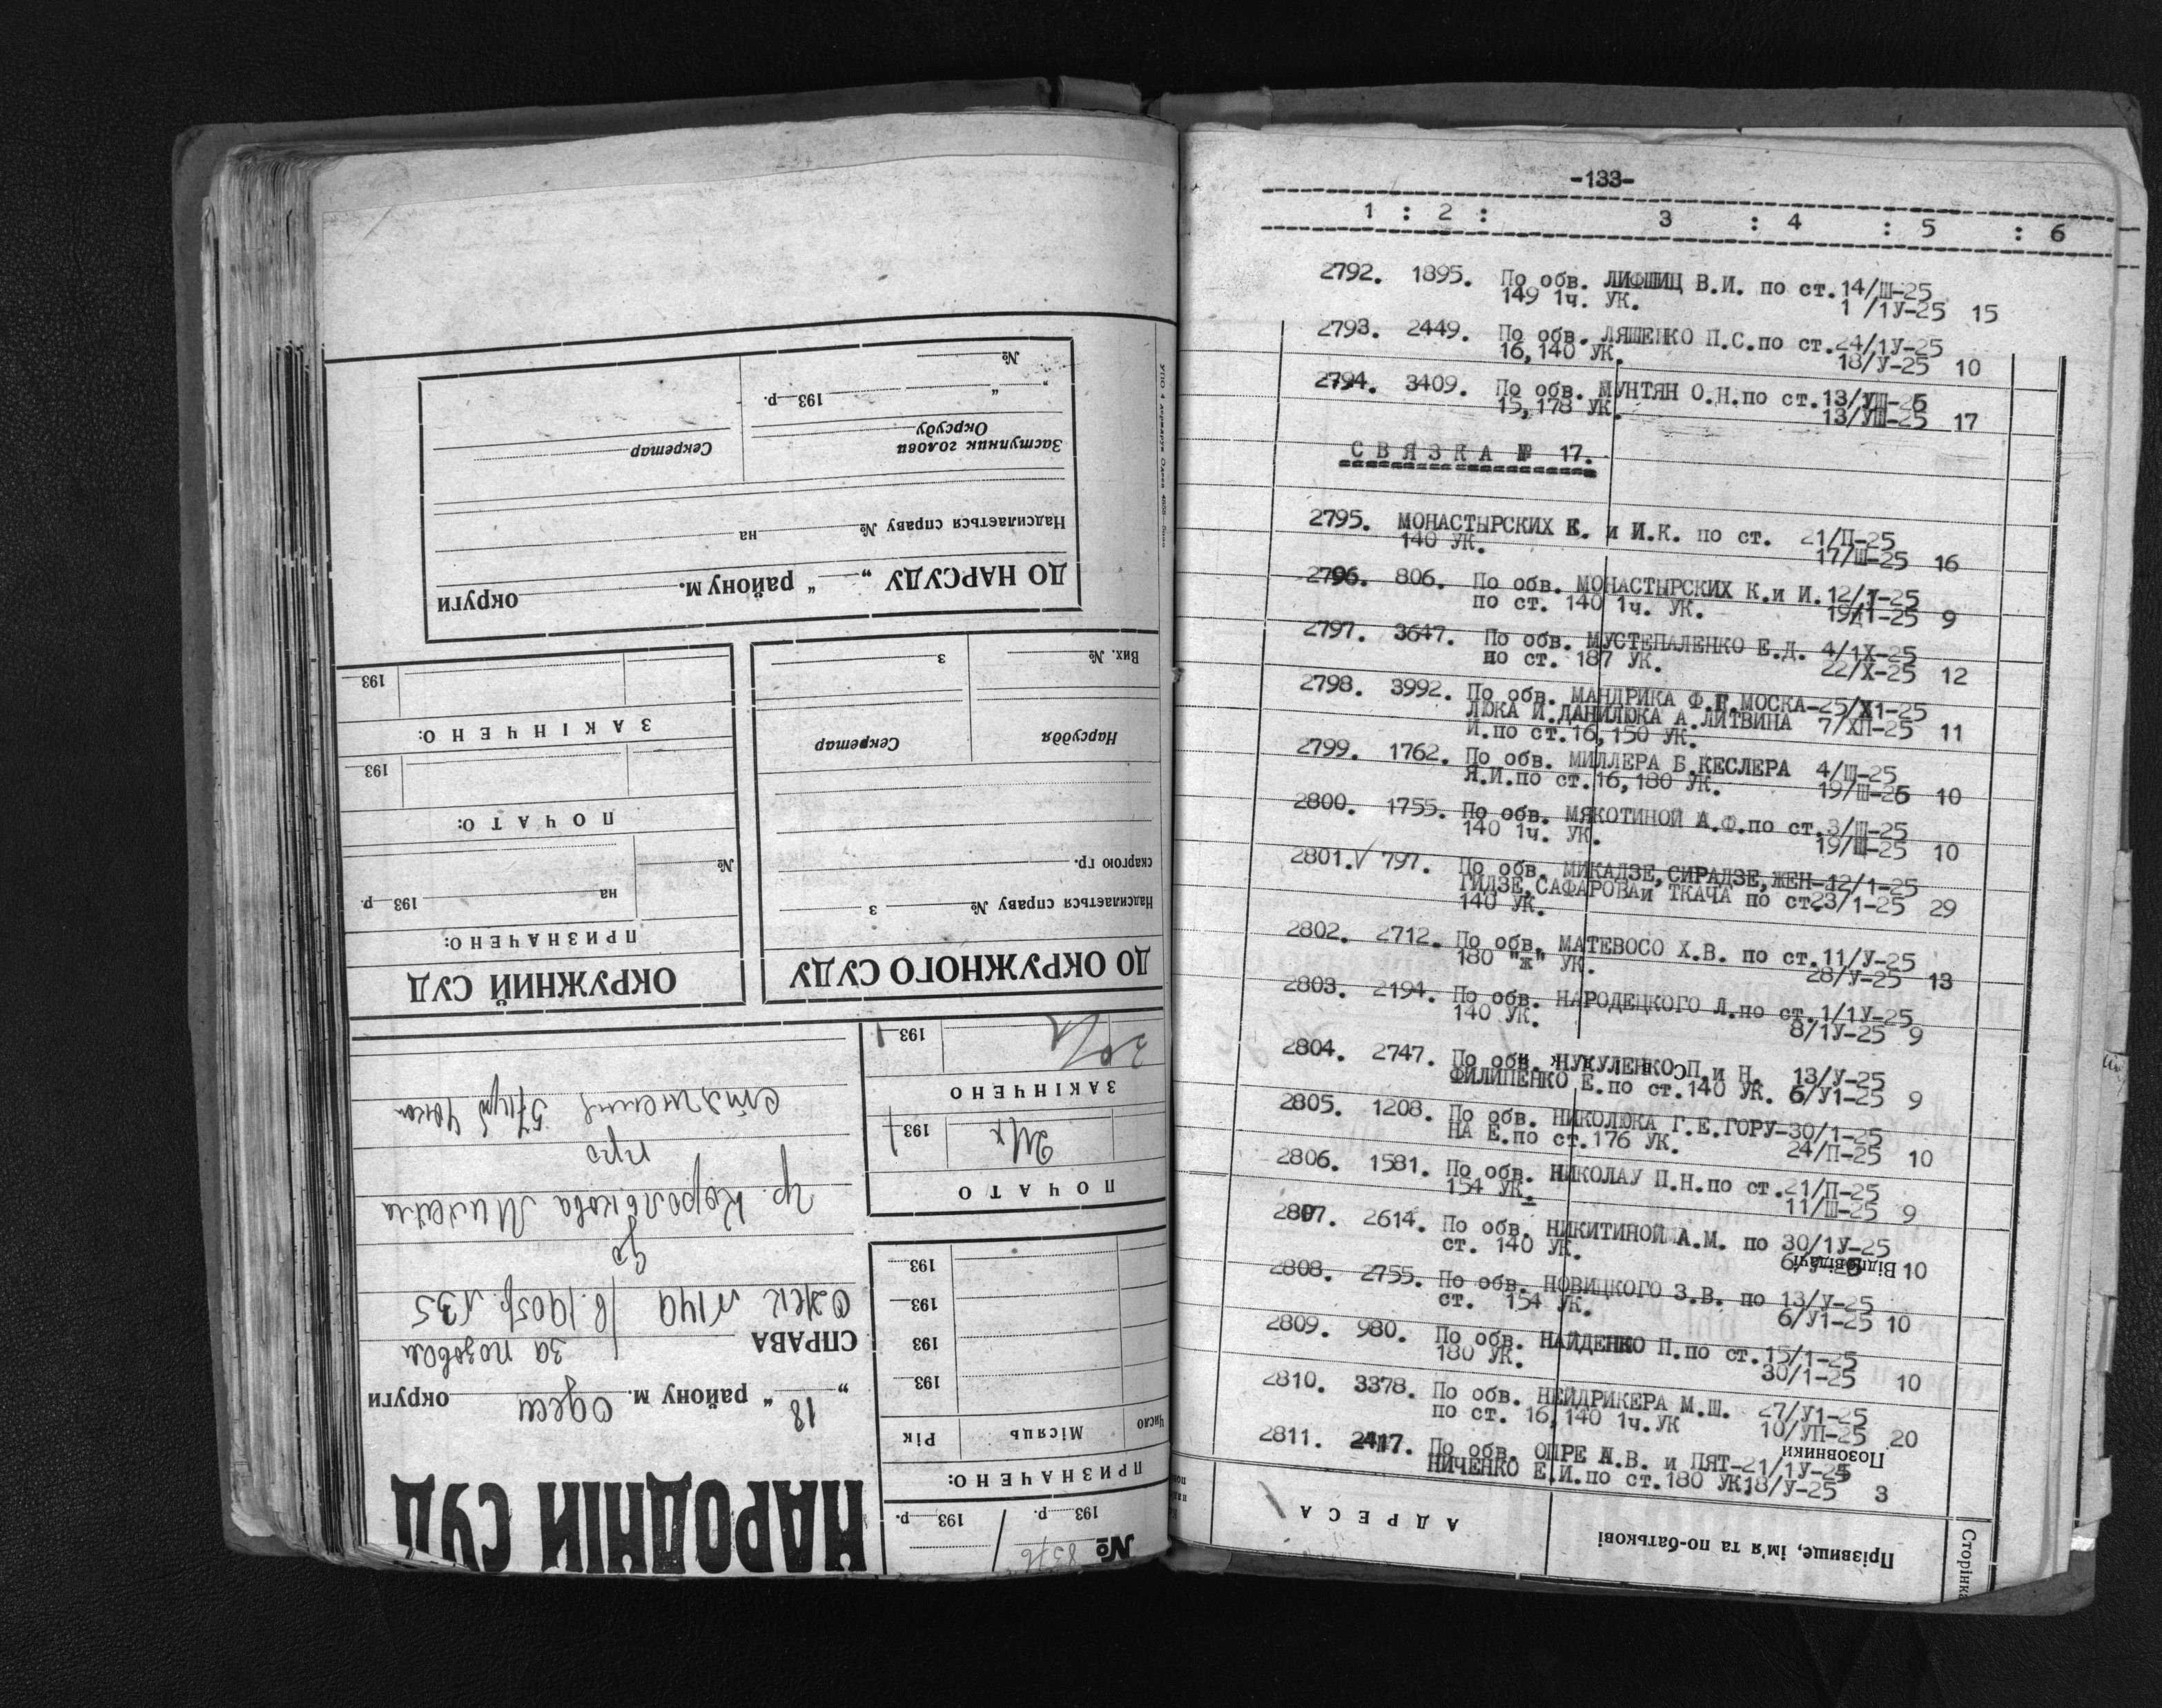 -133-
1 : 2 : 3 : 4 : 5 : 6
2792. 1895. По обв. ЛИФШИЦ В.И. по ст.14/Ш-25
149 1ч. УК. 1 /1У-25 15
2793. 2449. По обв. ЛЯШЕНКО П.С.по ст.24/1У-25
16,140 УК. 18/У-25 10
2794. 3409. По обв. МУНТЯН О.Н.по ст.13/УШ-25
15,178 УК. 13/УШ-25 17
СВЯЗКА № 17.
2795. МОНАСТЫРСКИХ К. и И.К. по ст. 21/П-25
140 УК. 17/Ш-25 16
2796. 806. По обв. МОНАСТЫРСКИХ К.и И.12/1-25
по ст. 140 1ч. УК. 19/1-25 9
2797. 3647. По обв. МУСТЕПАЛЕНКО Е.Д. 4/1Х-25
по ст. 187 УК. 22/Х-25 12
2798. 3992. По обв. МАНДРИКА Ф.Г.МОСКА-25/Х1-25
ЛЮКА И.ДАНИЛЮКА А.ЛИТВИНА 7/ХП-25 11
И.по ст.16,150 УК.
2799. 1762. По обв. МИЛЛЕРА Б.КЕСЛЕРА 4/Ш-25
Я.И.по ст.16,180 УК. 19/Ш-25 10
2800. 1755. По обв. МЯКОТИНОЙ А.Ф.по ст.3/Ш-25
140 1ч. УК. 19/Ш-25 10
2801.√ 797. По обв. МИКАДЗЕ,СИРАДЗЕ,ЖЕН-12/1-25
ГИДЗЕ,САФАРОВАи ТКАЧА по ст.23/1-25 29
140 УК.
2802. 2712. По обв. МАТЕВОСО Х.В. по ст.11/У-25
180 "ж" УК. 28/У-25 13
2803. 2194. По обв. НАРОДЕЦКОГО Л.по ст.1/1У-25
140 УК. 8/1У-25 9
2804. 2747. По обв. НУКУЛЕНКО П.и Н. 13/У-25
ФИЛИПЕНКО Е.по ст.140 УК. 6/У1-25 9
2805. 1208. По обв. НИКОЛЮКА Г.Е.ГОРУ-30/1-25
НА Е.по ст.176 УК. 24/П-25 10
2806. 1581. По обв. НИКОЛАУ П.Н.по ст.21/П-25
154 УК. 11/Ш-25 9
2807. 2614. По обв. НИКИТИНОЙ А.М. по 30/1У-25
ст. 140 УК. 10
Відповідачі
2808. 2755. По обв. НОВИЦКОГО З.В. по 13/У-25
ст. 154 УК. 6/У1-25 10
2809. 980. По обв. НАЙДЕНКО П.по ст.15/1-25
180 УК. 30/1-25 10
2810. 3378. По обв. НЕЙДРИКЕРА М.Ш. 27/У1-25
по ст. 16,140 1ч.УК 10/УП-25 20
Позовники
2811. 2417. По обв. ОПРЕ А.В. и ПЯТ-21/1У-25
НИЧЕНКО Е.И.по ст.180 УК.18/У-25 3
АДРЕСА
Прізвище, ім'я та по-батькові
Сторінка
НАРОДНІЙ СУД
18 " району м. Одеси округи
СПРАВА за позовом
ЖК №149
до
гр. Королькова Михайла
про
№ 8376
193 р. 193 р.
ПРИЗНАЧЕНО:
Число Місяць Рік
193
193
193
193
ПОЧАТО
193
ЗАКІНЧЕНО
193
ДО ОКРУЖНОГО СУДУ
Надсилається справу № з
скаргою гр.
Нарсуддя Секретар
Вих. № з
ОКРУЖНИЙ СУД
ПРИЗНАЧЕНО:
на 193 р.
№
ПОЧАТО:
193
ЗАКІНЧЕНО:
193
ДО НАРСУДУ „ " району м. округи
Надсилається справу № на
Заступник голови
Окрсуду Секретар
" " 193 р.
№